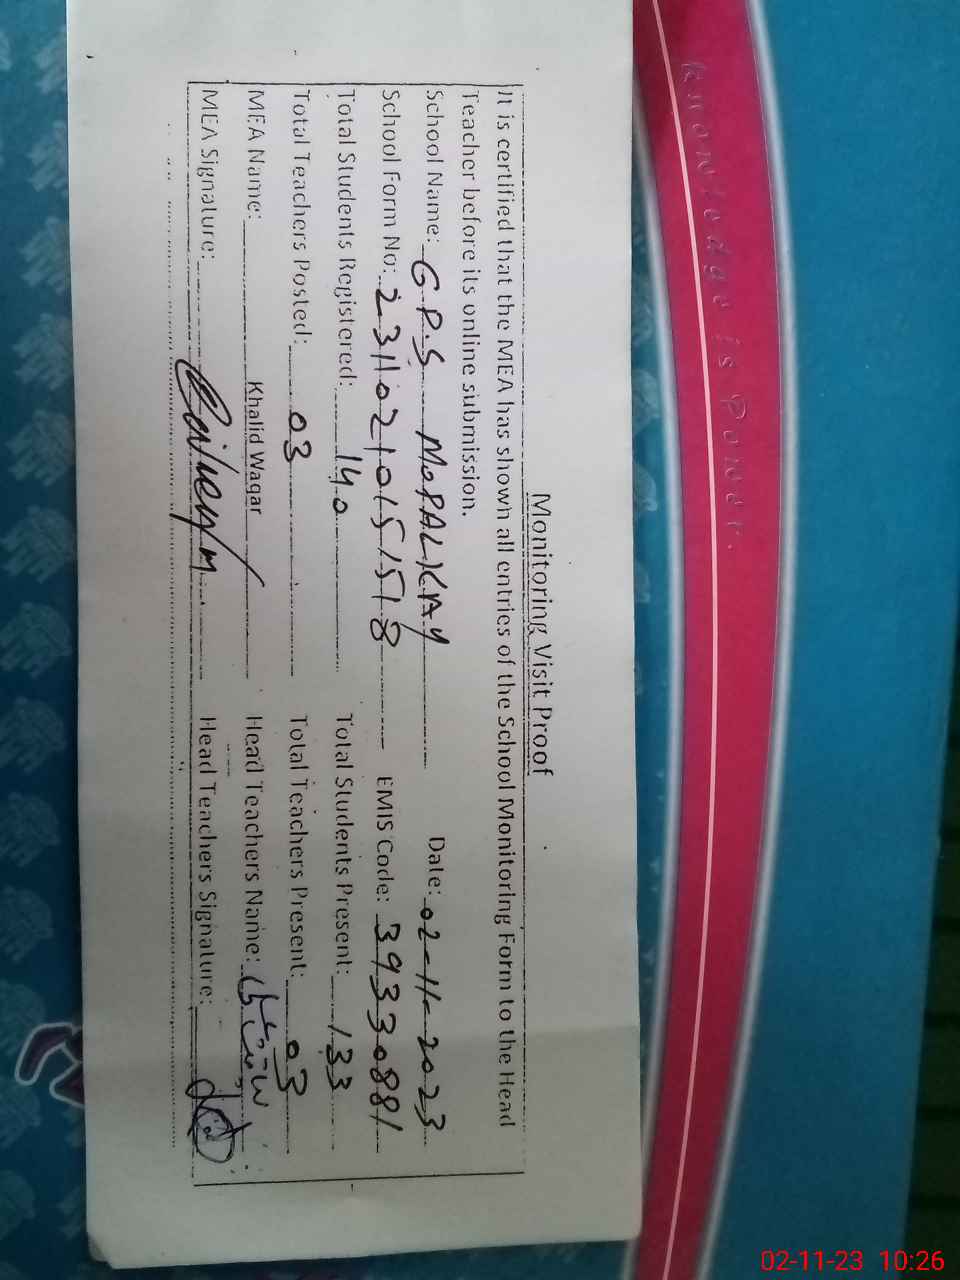 Knowledge is Power.
Monitoring Visit Proof
It is certified that the MEA has shown all entries of the School Monitoring Form to the Head
Teacher before its online submission.
School Name: G.P.S MOPALIKAY Date: 02-11-2023
School Form No: 23110210151518 EMIS Code: 39330881
Total Students Registered: 140 Total Students Present: 133
Total Teachers Posted: 03 Total Teachers Present: 03
MEA Name: Khalid Waqar Head Teachers Name:
MEA Signature: Head Teachers Signature:
02-11-23 10:26